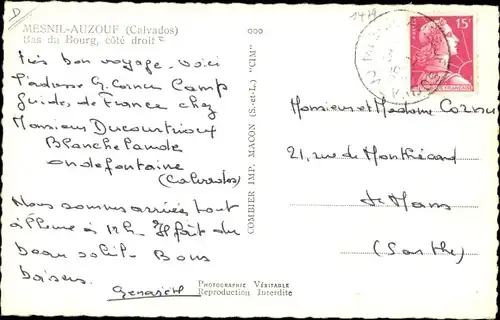 D
1479
MESNIL-AUZOUF (Calvados)
Bas du Bourg, côté droit
ooo
15F
Très bon voyage. Voici
l'adresse G. Cornu Camp
Guides de France chez
Monsieur Ducourtrioux
Blanchelande
Ondefontaine
(Calvados)
Nous sommes arrivés tout
à l'heure à 12h. Il fait du
beau soleil. Bons
baisers.
COMBIER IMP. MACON (S.-et-L.) "CIM"
Monsieur et Madame Cornu
21, rue de Monthéard
Le Mans
(Sarthe)
PHOTOGRAPHIE VÉRITABLE
Reproduction Interdite